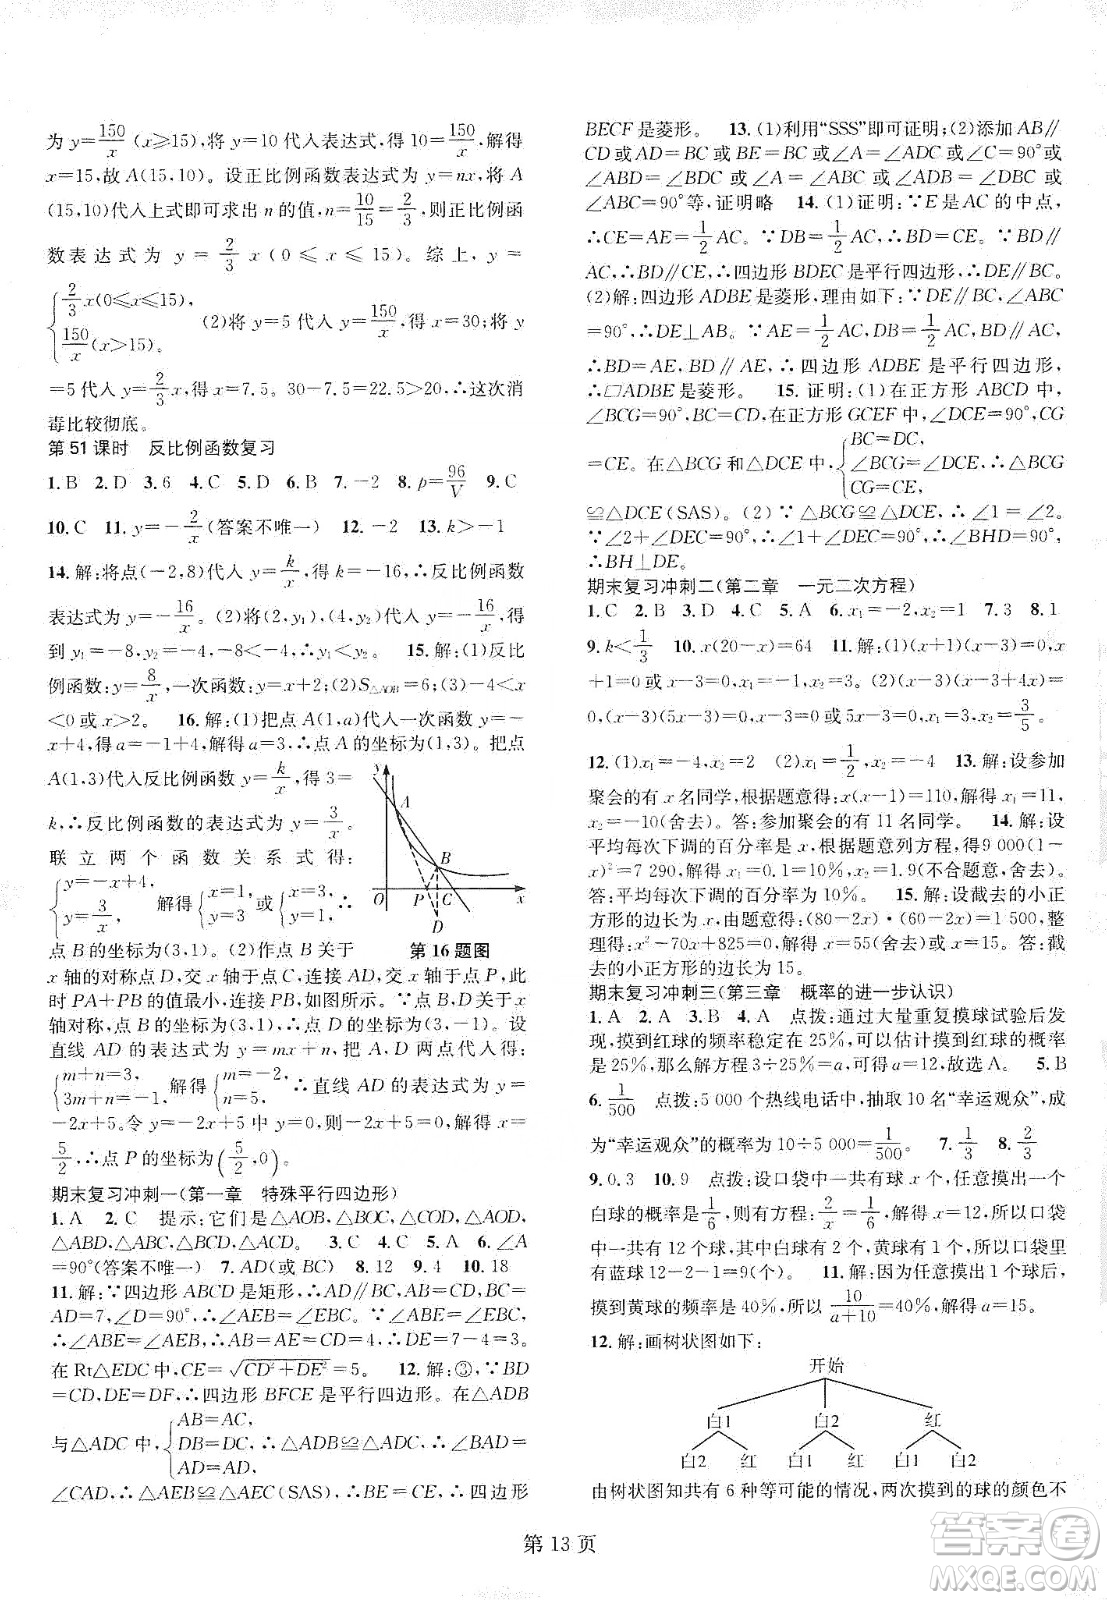 为 y=150/x (x≥15),将 y=10 代入表达式,得 10=150/x,解得
x=15,故 A(15,10)。设正比例函数表达式为 y=nx,将 A
(15,10)代入上式即可求出 n 的值,n=10/15=2/3,则正比例函
数表达式为 y=2/3 x(0≤x≤15)。综上,y=
{2/3 x(0≤x≤15)
150/x (x>15)。 (2)将 y=5 代入 y=150/x,得 x=30;将 y
=5 代入 y=2/3 x,得 x=7.5。30-7.5=22.5>20∴这次消
毒比较彻底。
第 51 课时 反比例函数复习
1.B 2.D 3.6 4.C 5.D 6.B 7.-2 8.p=96/V 9.C
10.C 11.y=-2/x(答案不唯一) 12.-2 13.k>-1
14.解:将点(-2,8)代入 y=k/x,得 k=-16,∴反比例函数
表达式为 y=-16/x。将(2,y₁),(4,y₂)代入 y=-16/x,得
到 y₁=-8,y₂=-4,-8<-4∴y₁<y₂ 15.解:(1)反比
例函数:y=8/x,一次函数:y=x+2;(2)S△AOB=6;(3)-4<x
<0 或 x>2。 16.解:(1)把点 A(1,a)代入一次函数 y=
-x+4,得 a=-1+4,解得 a=3,∴点 A 的坐标为(1,3)。把点
A(1,3)代入反比例函数 y=k/x,得 3=
k,∴反比例函数的表达式为 y=3/x。
联立两个函数关系式得:
{y=-x+4,
y=3/x, 解得{x=1,
y=3 或{x=3,
y=1, ∴
点 B 的坐标为(3,1)。(2)作点 B 关于
x 轴的对称点 D,交 x 轴于点 C,连接 AD,交 x 轴于点 P,此
时 PA+PB 的值最小,连接 PB,如图所示。∵点 B、D 关于 x
轴对称,点 B 的坐标为(3,1),∴点 D 的坐标为(3,-1)。设
直线 AD 的表达式为 y=mx+n,把 A,D 两点代入得:
{m+n=3,
3m+n=-1, 解得{m=-2,
n=5, ∴直线 AD 的表达式为 y=
-2x+5。令 y=-2x+5 中 y=0,则-2x+5=0,解得:x=
5/2,∴点 P 的坐标为(5/2,0)。
y
A
B
O
P
C
x
D
第 16 题图
期末复习冲刺一(第一章 特殊平行四边形)
1.A 2.C 提示:它们是△AOB,△BOC,△COD,△AOD,
△ABD,△ABC,△BCD,△ACD。 3.C 4.C 5.A 6.∠A
=90°(答案不唯一) 7.AD(或 BC) 8.12 9.4 10.18
11.解:∵四边形 ABCD 是矩形,∴AB=DC=4,BC=
AD=7,∠D=90°,∴∠AEB=∠EBC。∵∠ABE=∠EBC,
∴∠ABE=∠AEB,∴AB=AE=4,∴DE=7-4=3。
在 Rt△EDC 中,CE=√CD²+DE²=5。 12.解:③,∵BD
=CD,DE=DF,∴四边形 BFCE 是平行四边形。在△ADB
与△ADC 中,{AB=AC,
DB=DC,
AD=AD, ∴△ADB≌△ADC,∴∠BAD=
∠CAD,∴△ABE≌△AEC(SAS),∴BE=CE,∴四边形
BECF 是菱形。 13.(1)利用“SSS”即可证明;(2)添加 AB∥
CD 或 AD=BC 或 BE=BC 或∠A=∠ADC 或∠C=90°或
∠ABD=∠BDC 或∠A=∠C 或∠C+∠ABC=180°或
∠ABC=90°等,证明略 14.(1)证明:∵E 是 AC 的中点,
∴CE=AE=1/2 AC。∵DB=1/2 AC,∴DB=CE。∵DB∥
AC,∴BD∥CE,∴四边形 BDEC 是平行四边形,∴DE∥BC。
(2)解:四边形 ADBE 是菱形,理由如下:∵DE∥BC,∠ABC
=90°,∴DE⊥AB。∵AE=1/2 AC,DB=1/2 AC,
∴BD=AE,BD∥AE,∴四边形 ADBE 是平行四边形,
∴□ADBE 是菱形。 15.证明:(1)在正方形 ABCD 中,
∠BCG=90°,BC=CD,在正方形 GCEF 中,∠DCE=90°,CG
=CE。在△BCG 和△DCE 中,{BC=DC,
∠BCG=∠DCE,
CG=CE, ∴△BCG
≌△DCE(SAS)。(2)∵△BCG≌△DCE,∴∠1=∠2。
∵∠2+∠DEC=90°,∴∠1+∠DEC=90°,∴∠BHD=90°,
∴BH⊥DE。
期末复习冲刺二(第二章 一元二次方程)
1.C 2.B 3.D 4.C 5.A 6.x₁=-2,x₂=1 7.3 8.1
9.k<1/3 10.x(20-x)=64 11.解:(1)(x+1)²=0,x
+1=0或 x+1=0,x₁=x₂=-1。(2)(x-3)(x-3+4x)=
0,(x-3)(5x-3)=0,x-3=0 或 5x-3=0,x₁=3,x₂=3/5。
12.(1)x₁=-2,x₂=4 (2)x₁=1/2,x₂=-4 13.解:设参加
聚会的有 x 名同学,根据题意得:x(x-1)=110,解得 x₁=11,
x₂=-10(舍去)。答:参加聚会的有 11 名同学。 14.解:设
平均每次下调的百分率是 x,根据题意列方程,得 9 000(1-
x)²=7 290,解得 x₁=0.1=10%,x₂=1.9(不合题意,舍去)。
答:平均每次下调的百分率为 10%。 15.解:设截去的小正
方形的边长为 x,由题意得:(80-2x)·(60-2x)=1 500,
整理得:x²-70x+825=0,解得:x₁=55(舍去)或 x₂=15。答:截
去的小正方形的边长为 15。
期末复习冲刺三(第三章 概率的进一步认识)
1.A 2.A 3.B 4.A 点拨:通过大量重复摸球试验后发
现,摸到红球的频率稳定在 25%,可以估计摸到红球的概率
是 25%,那么解方程 3÷25%=a,可得 a=12,故选 A。 5.B
6.1/500 点拨:5 000 个热线电话中,抽取 10 名“幸运观众”,成
为“幸运观众”的概率为 10÷5 000=1/500。 7.1/3 8.2/3
9.0.3 10.9 点拨:设口袋中一共有球 x 个,任意摸出一个
白球的概率是1/6,则有方程:2/x=1/6,解得 x=12,所以口袋
中一共有 12 个球,其中白球有 2 个,黄球有 1 个,所以口袋里
有蓝球 12-2-1=9(个)。 11.解:因为任意摸出一个球后,
摸到黄球的频率是 40%,所以10/(a+10)=40%,解得 a=15。
12.解:画树状图如下:
开始
白1 白2 红
白2 红 白1 红 白1 白2
由树状图知共有 6 种等可能的情况,两次摸到的球的颜色不
第 13 页
答案卷
MXQE.COM